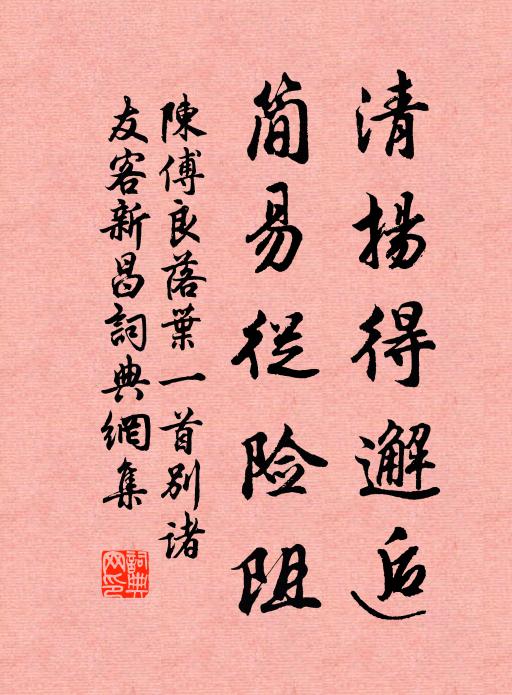 清揚得邂逅
简易從险阻
陳傅良落葉一首别諸
友客新昌詞典網集
詞典
网印